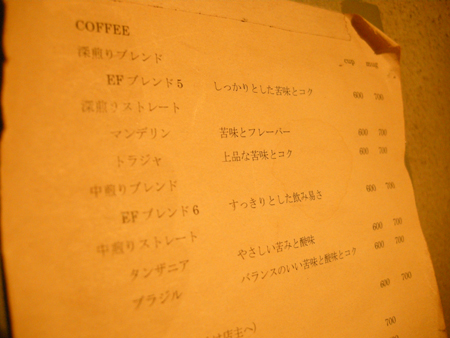 COFFEE
cup mug
深煎りブレンド
EFブレンド5 しっかりとした苦味とコク 600 700
深煎りストレート
マンデリン 苦味とフレーバー 600 700
トラジャ 上品な苦味とコク 600 700
中煎りブレンド
EFブレンド6 すっきりとした飲み易さ 600 700
中煎りストレート
タンザニア やさしい苦みと酸味 600 700
ブラジル バランスのいい苦味と酸味とコク 600 700
600 700
700
店主へ)
700